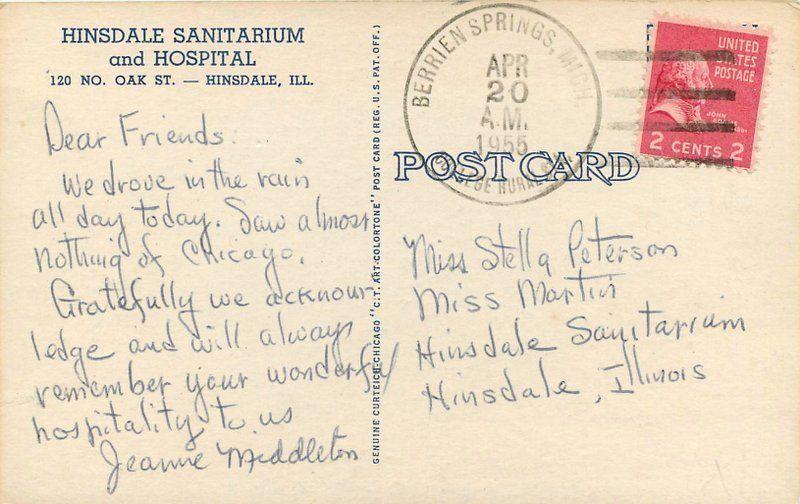 HINSDALE SANITARIUM
and HOSPITAL
120 NO. OAK ST. — HINSDALE, ILL.
Dear Friends:
We drove in the rain
all day today. Saw almost
nothing of Chicago.
Gratefully we acknow-
ledge and will always
remember your wonderful
hospitality to us
Jeanne Middleton
GENUINE CURTEICH-CHICAGO "C.T. ART-COLORTONE" POST CARD (REG. U.S. PAT. OFF.)
BERRIEN SPRINGS, MICH.
APR
20
A.M.
1955
COLLEGE RURAL
UNITED
STATES
POSTAGE
JOHN
2 CENTS 2
POST CARD
Miss Stella Peterson
Miss Martin
Hinsdale Sanitarium
Hinsdale, Illinois